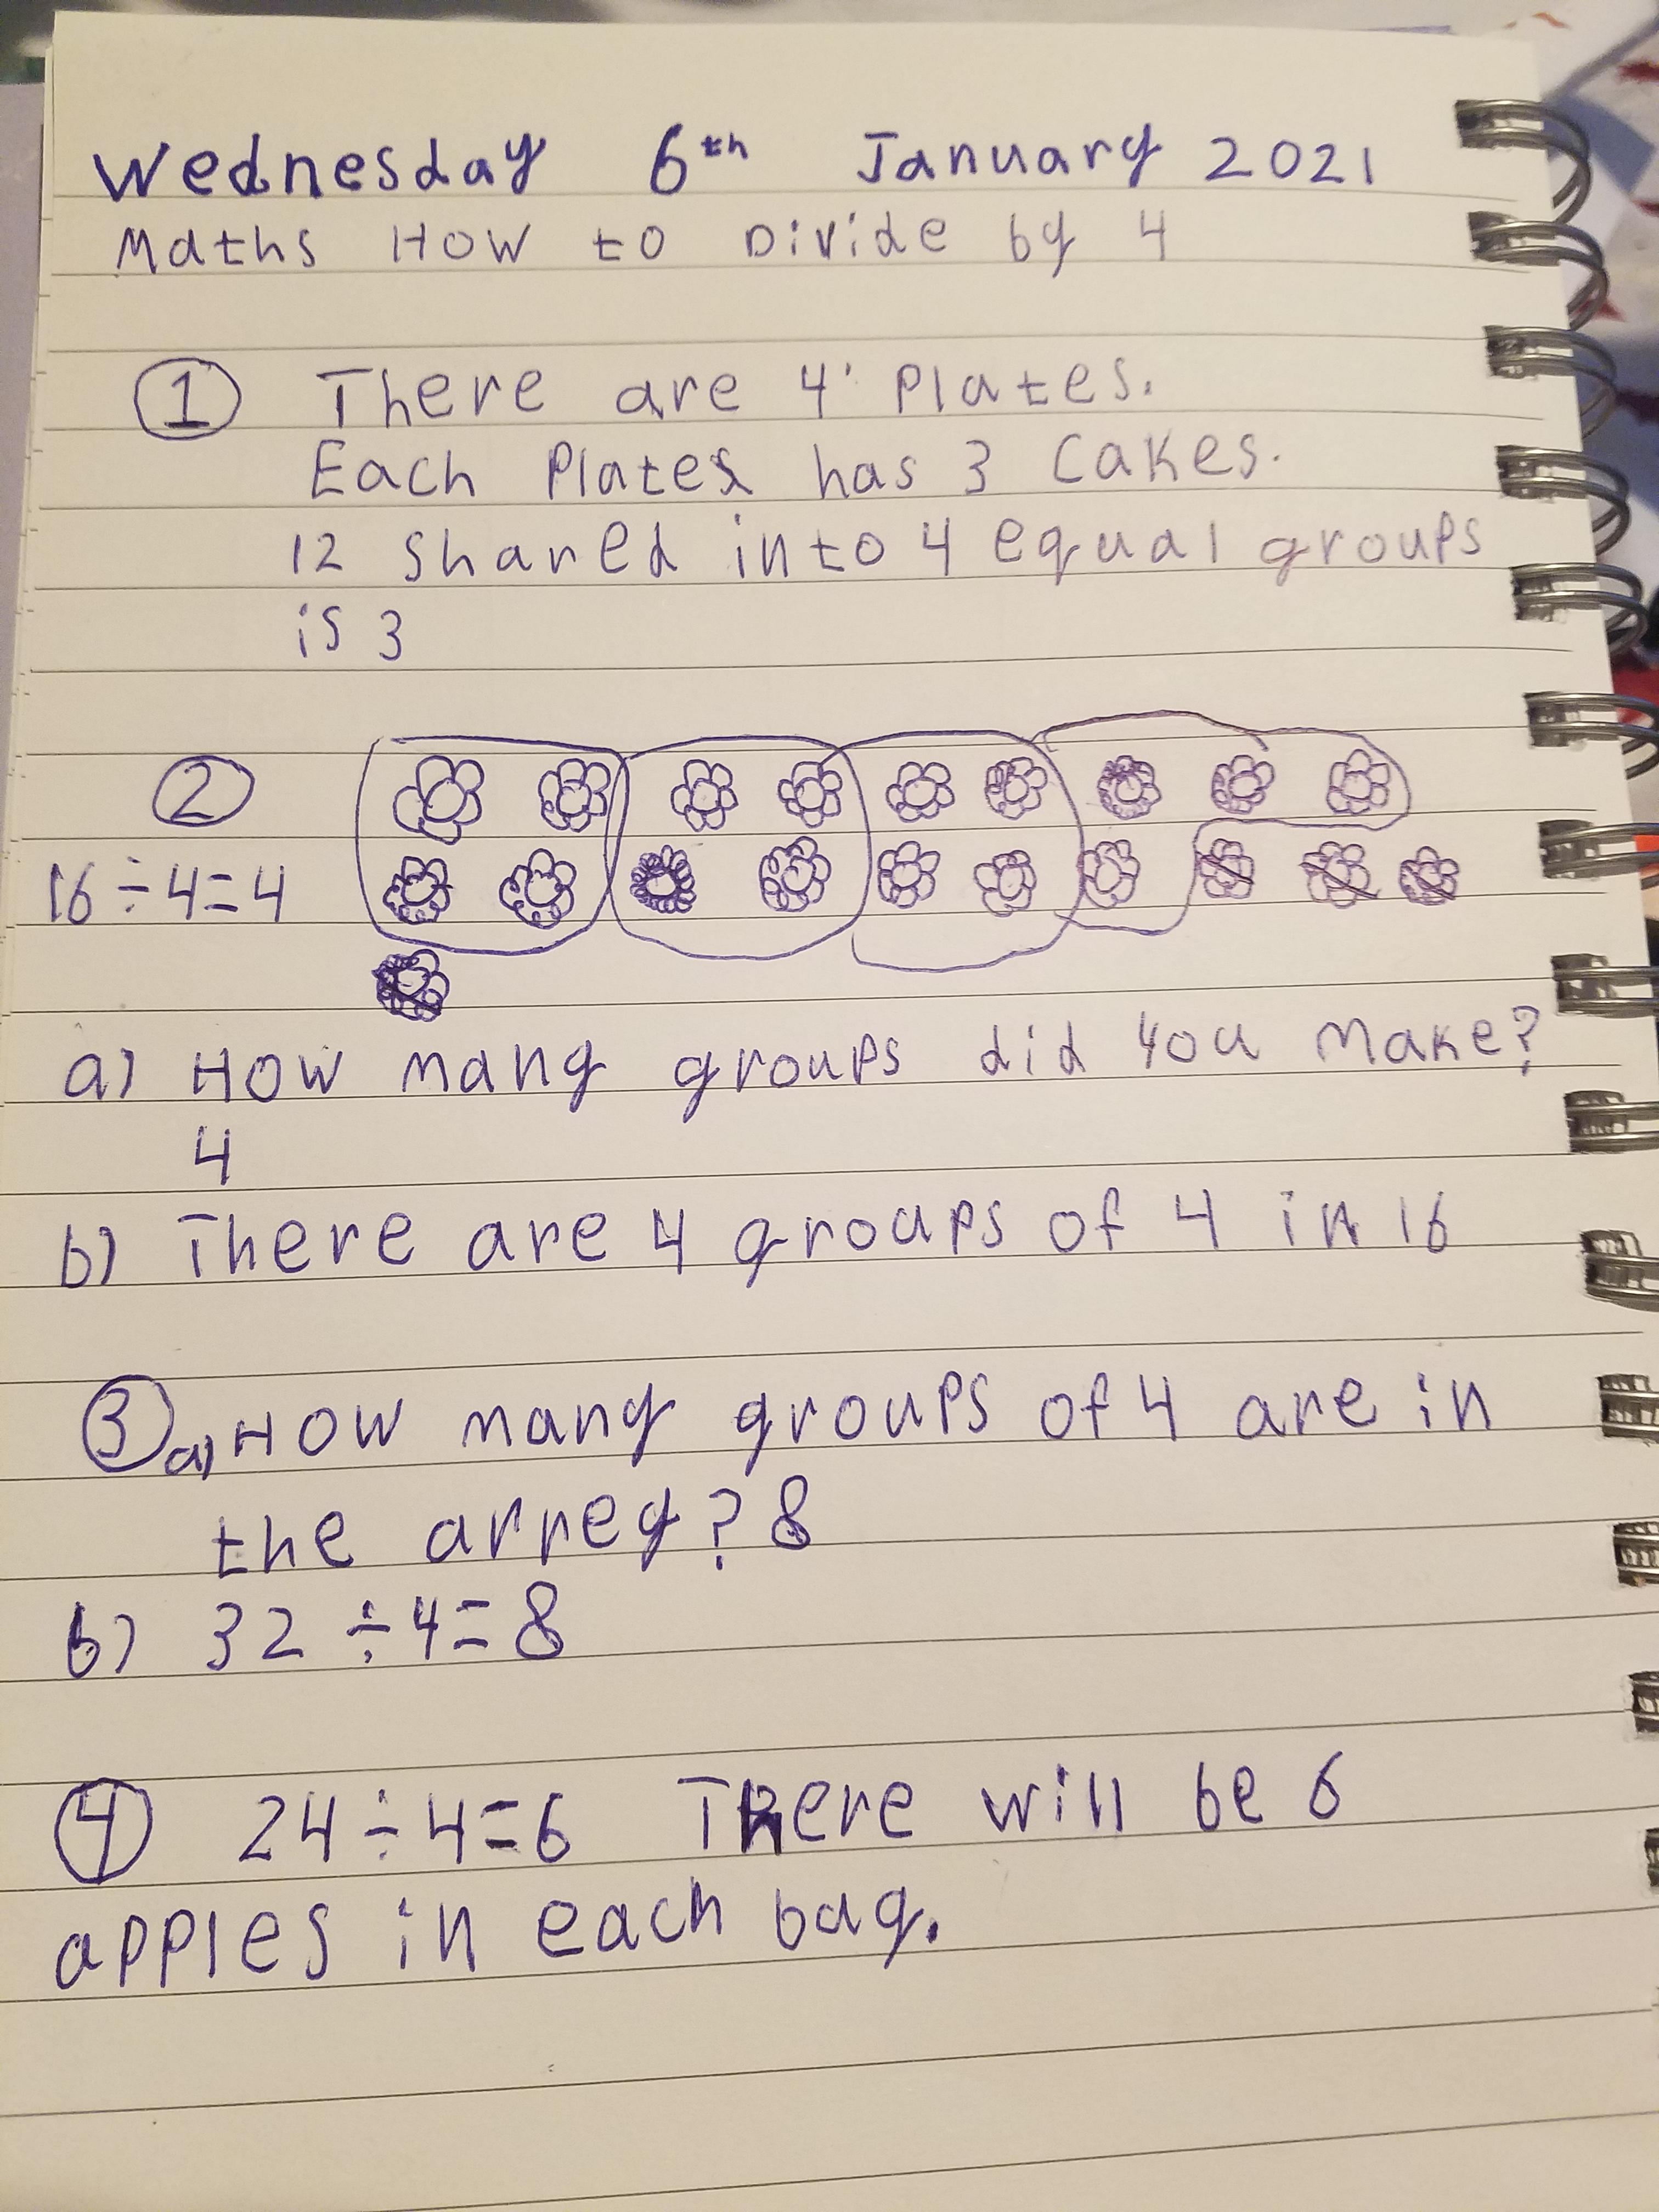 Wednesday 6th January 2021
Maths How to Divide by 4
1 There are 4 Plates.
Each Plates has 3 Cakes.
12 shared into 4 equal groups
is 3
2
16÷4=4
a) How many groups did you make?
4
b) There are 4 groups of 4 in 16
3 a) How many groups of 4 are in
the arrey? 8
b) 32÷4=8
4 24÷4=6 There will be 6
apples in each bag.